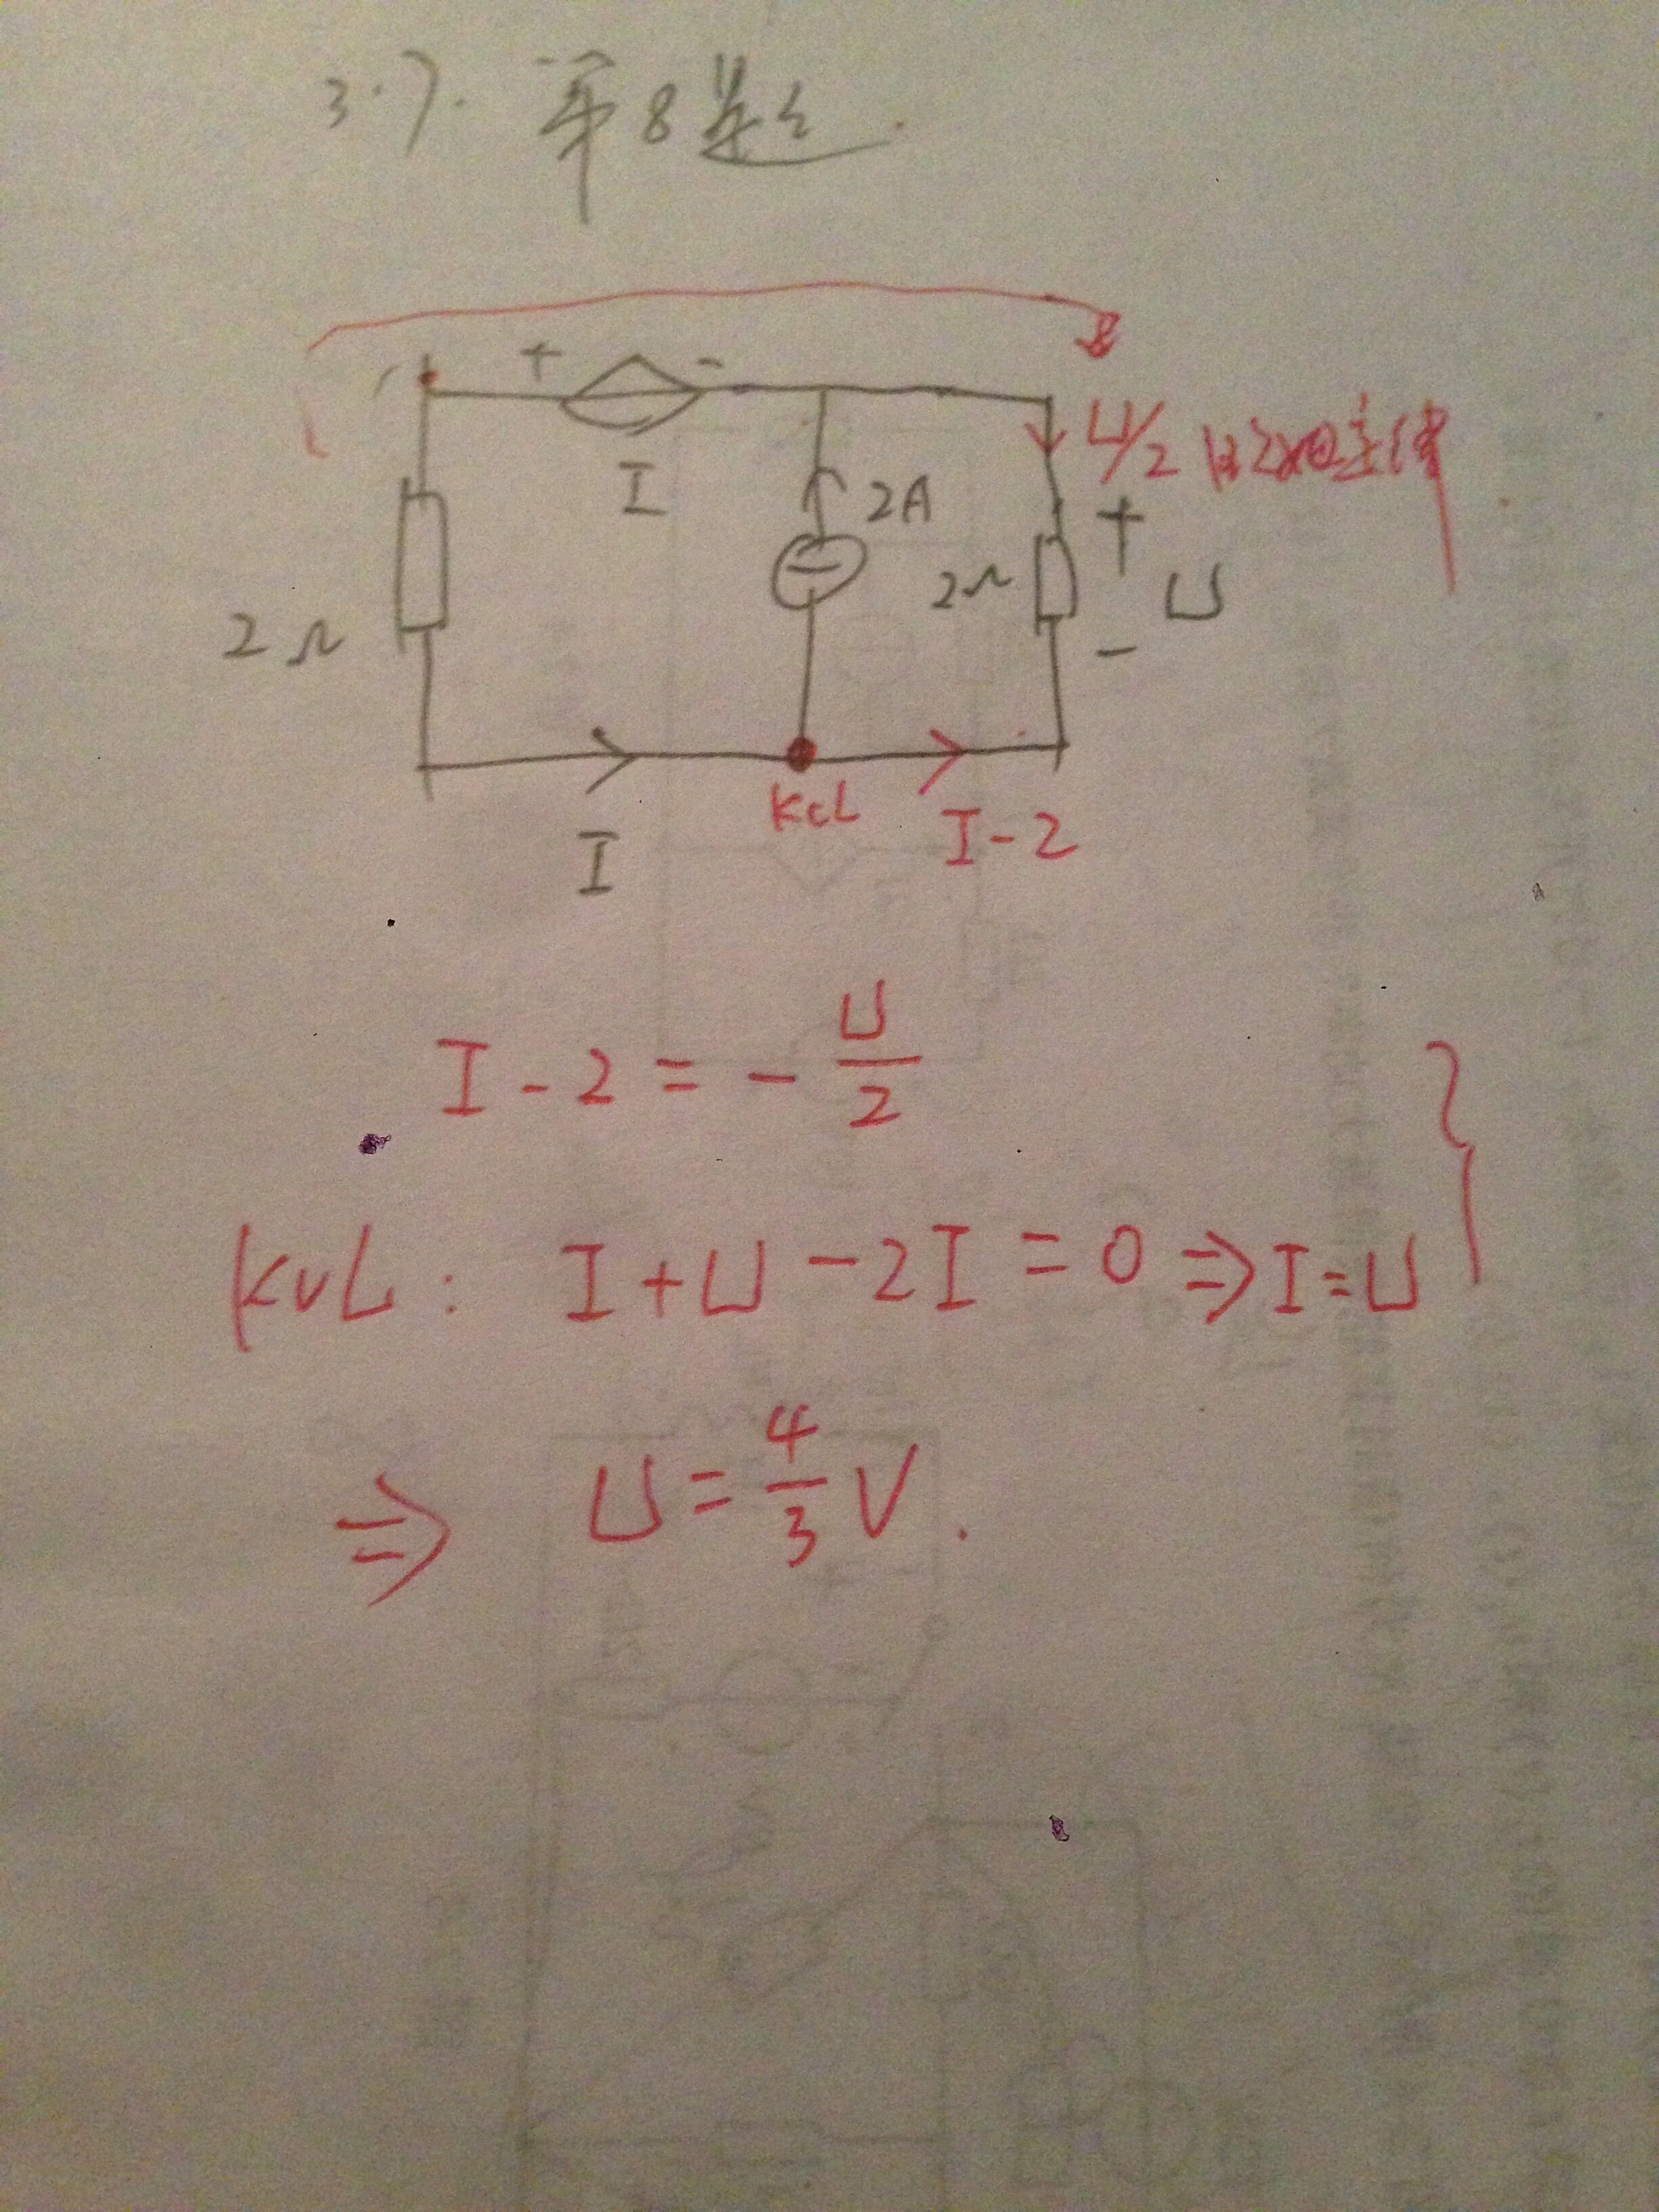 3.7. 第8题.
+ -
I
2A
U/2
+
2Ω
2Ω
U
-
KCL
I-2
I
I - 2 = - U/2
KVL: I + U - 2I = 0 ⇒ I = U
⇒ U = 4/3 V.